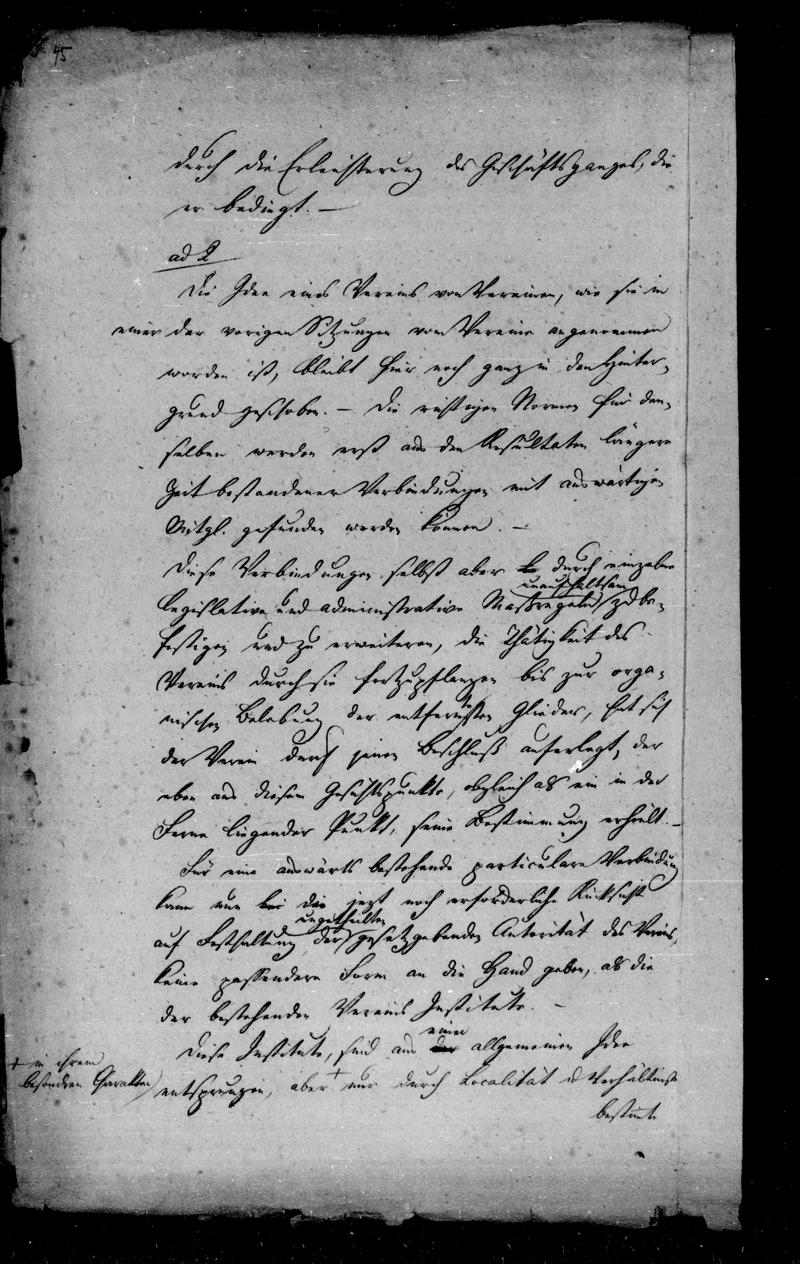 45
durch die Erleichterung des Geschäftsganges, die
er bedingt. —
ad 2
Die Idee eines Vereins von Vereinen, wie sie in
einer der vorigen Sitzungen vom Vereine angenommen
worden ist, bleibt hier noch ganz in den Hinter-
grund geschoben. — Die richtigen Normen für den-
selben werden erst aus den Resultaten längere
Zeit bestandener Verbindungen mit auswärtigen
Mitgl. gefunden werden können. —
Diese Verbindungen selbst aber durch einzelne
unaufhaltsam
legislative und administrative Maßregeln zu be-
festigen und zu erweitern, die Thätigkeit des
Vereins durch sie fortzupflanzen bis zur orga-
nischen Belebung der entferntesten Glieder, hat sich
der Verein durch jenen Beschluß auferlegt, der
eben aus diesem Gesichtspunkte, obgleich als ein in der
Ferne liegender Punkt, seine Bestimmung erhielt. —
Für eine auswärts bestehende particulare Verbindung
kann nun bei die jetzt noch erforderliche Rücksicht
ungetheilten
auf Festhaltung der gesetzgebenden Autorität des Vereins,
keine passendere Form an die Hand geben, als die
der bestehenden Vereins Institute. —
einer
Diese Institute, sind aus der allgemeinen Idee
+ in ihrem
besondren Charakter
entsprungen, aber + nur durch Localität u Verhältnisse
bestimt